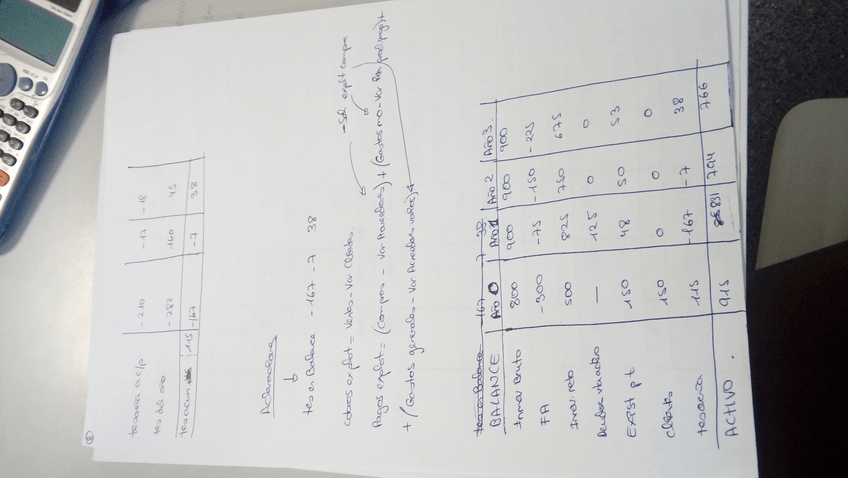 8
tesoreria a c/p -210 -13 -18
tes del año -282 160 45
tesoreria 115 -167 -7 38
Aclaraciones
tes en Balance -167 -7 38
cobros explot = ventas - Var Clientes
- Sol explot compra
Pagos explot = (compras - Var Proveedores) + (Gastos mo - Var
+ (Gastos generales - Var Acreedores varios)
tes en Balance -167 -7 38
BALANCE Año 0 Año 1 Año 2 Año 3
Inmov. Bruto 800 900 900 900
FA -300 -75 -150 -225
Inmov. neto 500 825 750 675
Deudor vta activo — 125 0 0
Exist p t 150 48 50 53
clientes 150 0 0 0
tesoreria 115 -167 -7 38
ACTIVO. 915 831 794 766